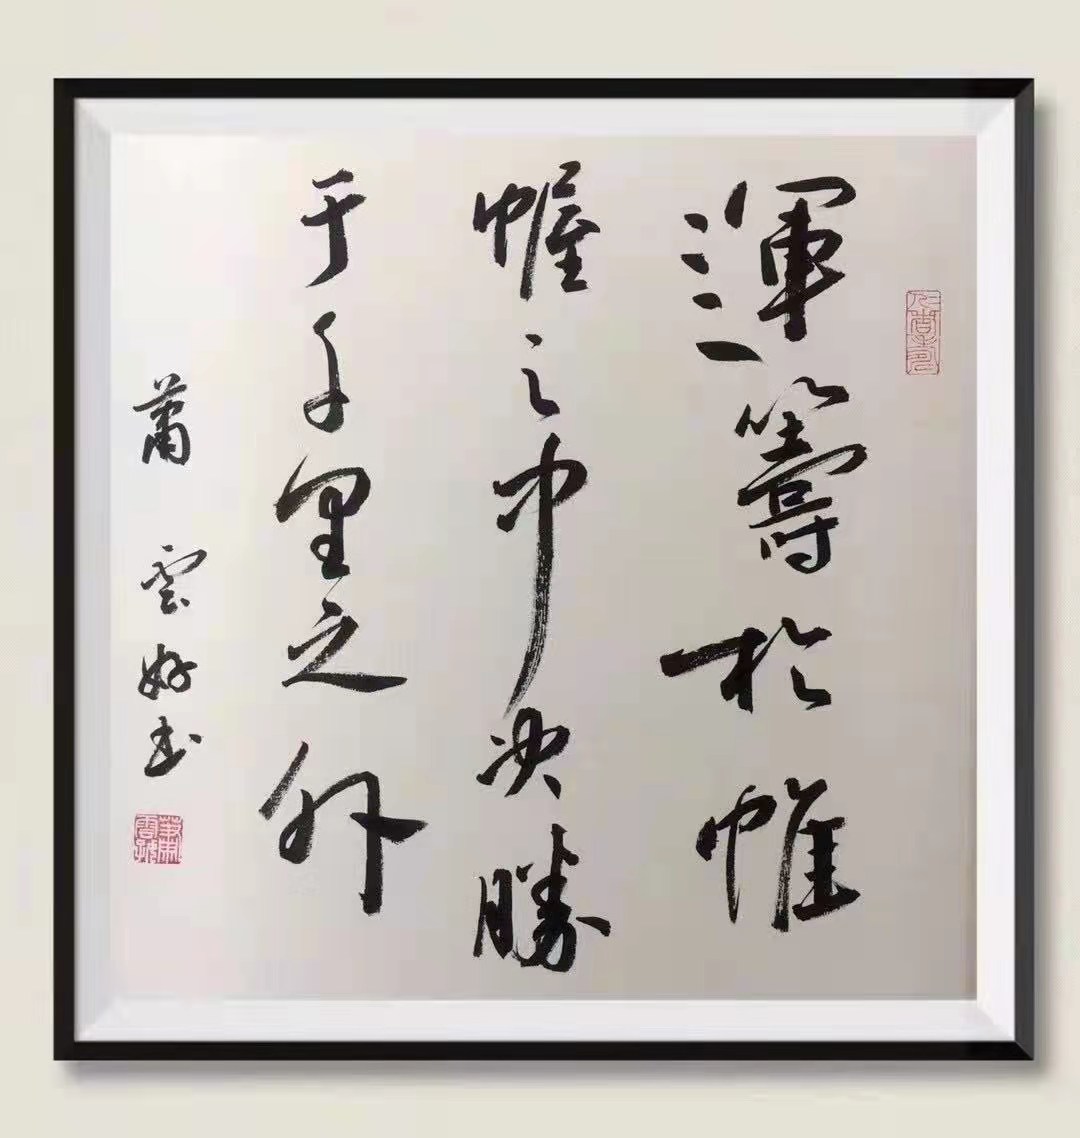 運籌於帷
幄之中决勝
于千里之外
蕭雲好书